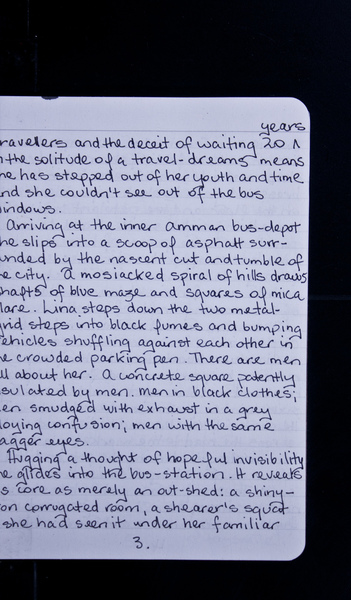 years
ravellers and the deceit of waiting 20 ʌ
n the solitude of a travel-dreams means
he has stepped out of her youth and time
nd she couldn't see out of the bus
indows.
Arriving at the inner amman bus-depot
he slips into a scoop of asphalt surr-
unded by the nascent cut and tumble of
e city. A mosiacked spiral of hills draws
hafts of blue maze and squares of mica
lare. Lina steps down the two metal-
grid steps into black fumes and bumping
ehicles shuffling against each other in
e crowded parking pen. There are men
ll about her. A concrete square patently
sulated by men. men in black clothes;
en smudged with exhaust in a grey
loying confusion; men with the same
agger eyes.
Hugging a thought of hopeful invisibility
he glides into the bus-station. It reveals
s core as merely an out-shed: a shiny-
on corrugated room, a shearer's squat
she had seen it under her familiar
3.